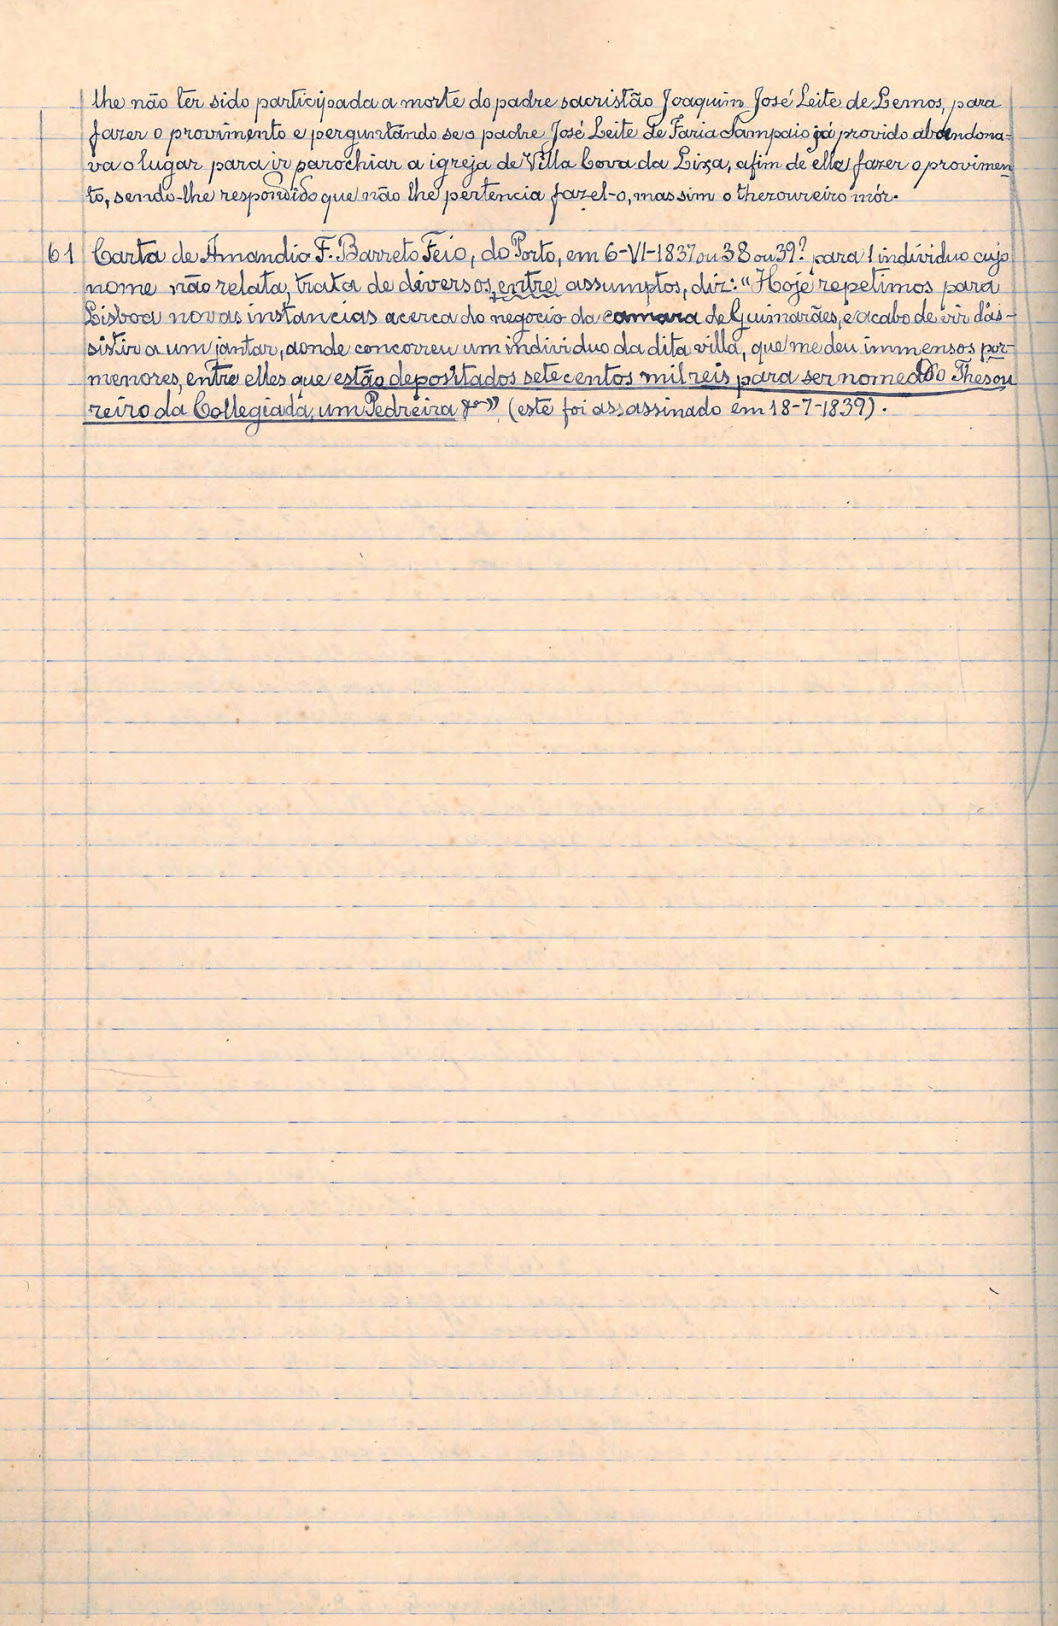 lhe não ter sido participada a morte do padre sacristão Joaquim José Leite de Lemos, para
fazer o provimento e perguntando se o padre José Leite de Faria Sampaio já provido abandona-
va o lugar para ir parochiar a igreja de Villa Cova da Lixa, afim de elle fazer o provimen
to, sendo-lhe respondido que não lhe pertencia fazel-o, mas sim o thezoureiro mór.
61 Carta de Amandio F. Barreto Feio, do Porto, em 6-VI-1837 ou 38 ou 39? para 1 individuo cujo
nome não relata, trata de diversos, entre assumptos, diz: "Hoje repetimos para
Lisboa novas instancias acerca do negocio da camara de Guimarães, e acabo de vir d'as-
sistir a um jantar, aonde concorreu um individuo da dita villa, que me deu immensos por-
menores, entre elles que estão depositados sete centos mil reis para ser nomeado Thesou
reiro da Collegiada, um Pedreira &" (este foi assassinado em 18-7-1839).